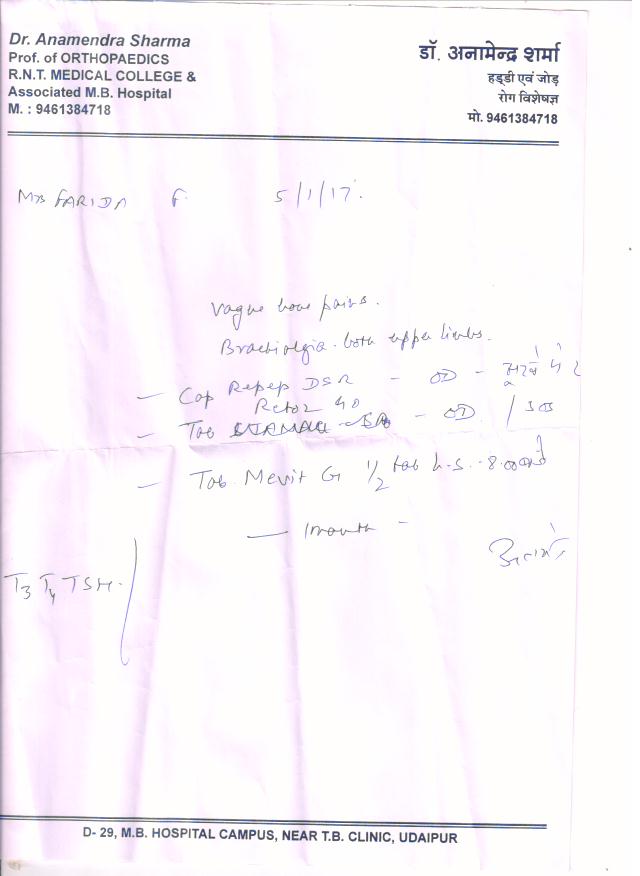 Dr. Anamendra Sharma
Prof. of ORTHOPAEDICS
R.N.T. MEDICAL COLLEGE &
Associated M.B. Hospital
M. : 9461384718
डॉ. अनामेन्द्र शर्मा
हड्डी एवं जोड़
रोग विशेषज्ञ
मो. 9461384718
Mrs FARIDA F 5/1/17.
Vague bone pains.
Brachialgia both upper limbs.
— Cap Repep DSR — OD –
40
— Tab — OD
— Tab Mevit G 1/2 tab h.s. - 8.00
— 1 month –
T3 T4 TSH.
D- 29, M.B. HOSPITAL CAMPUS, NEAR T.B. CLINIC, UDAIPUR